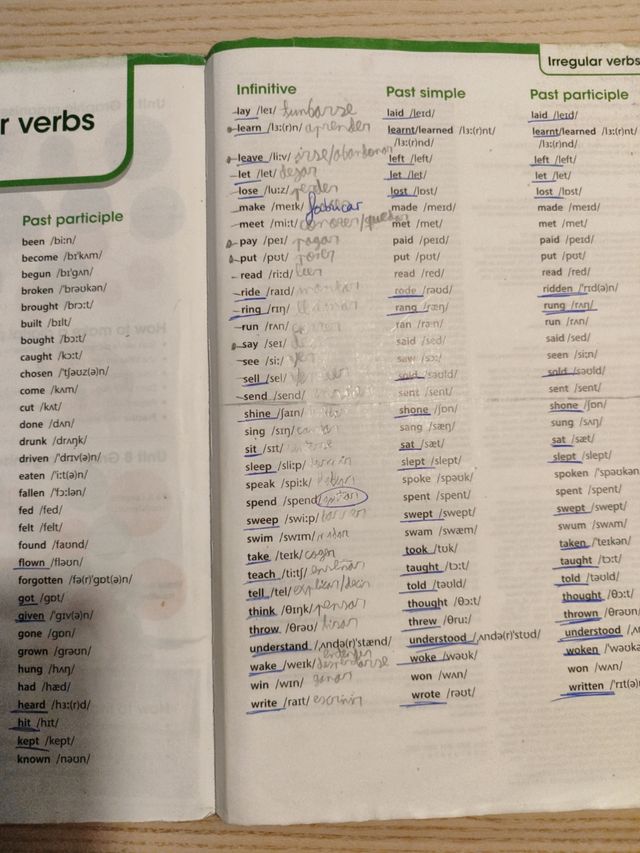 r verbs
Past participle
been /biːn/
become /bɪˈkʌm/
begun /bɪˈgʌn/
broken /ˈbrəʊkən/
brought /brɔːt/
built /bɪlt/
bought /bɔːt/
caught /kɔːt/
chosen /ˈtʃəʊz(ə)n/
come /kʌm/
cut /kʌt/
done /dʌn/
drunk /drʌŋk/
driven /ˈdrɪv(ə)n/
eaten /ˈiːt(ə)n/
fallen /ˈfɔːlən/
fed /fed/
felt /felt/
found /faʊnd/
flown /fləʊn/
forgotten /fə(r)ˈgɒt(ə)n/
got /gɒt/
given /ˈgɪv(ə)n/
gone /gɒn/
grown /grəʊn/
hung /hʌŋ/
had /hæd/
heard /hɜː(r)d/
hit /hɪt/
kept /kept/
known /nəʊn/
Irregular verbs
Infinitive Past simple Past participle
lay /leɪ/ tumbarse laid /leɪd/ laid /leɪd/
learn /lɜː(r)n/ aprender learnt/learned /lɜː(r)nt/ learnt/learned /lɜː(r)nt/
/lɜː(r)nd/ /lɜː(r)nd/
leave /liːv/ irse/abandonar left /left/ left /left/
let /let/ dejar let /let/ let /let/
lose /luːz/ perder lost /lɒst/ lost /lɒst/
make /meɪk/ fabricar made /meɪd/ made /meɪd/
meet /miːt/ conocer/quedar met /met/ met /met/
pay /peɪ/ pagar paid /peɪd/ paid /peɪd/
put /pʊt/ poner put /pʊt/ put /pʊt/
read /riːd/ leer read /red/ read /red/
ride /raɪd/ montar rode /rəʊd/ ridden /ˈrɪd(ə)n/
ring /rɪŋ/ llamar rang /ræŋ/ rung /rʌŋ/
run /rʌn/ correr ran /ræn/ run /rʌn/
say /seɪ/ said /sed/ said /sed/
see /siː/ ver saw /sɔː/ seen /siːn/
sell /sel/ sold /səʊld/ sold /səʊld/
send /send/ sent /sent/ sent /sent/
shine /ʃaɪn/ shone /ʃɒn/ shone /ʃɒn/
sing /sɪŋ/ sang /sæŋ/ sung /sʌŋ/
sit /sɪt/ sat /sæt/ sat /sæt/
sleep /sliːp/ slept /slept/ slept /slept/
speak /spiːk/ spoke /spəʊk/ spoken /ˈspəʊkən
spend /spend/ spent /spent/ spent /spent/
sweep /swiːp/ swept /swept/ swept /swept/
swim /swɪm/ swam /swæm/ swum /swʌm/
take /teɪk/ coger took /tʊk/ taken /ˈteɪkən/
teach /tiːtʃ/ enseñar taught /tɔːt/ taught /tɔːt/
tell /tel/ explicar/decir told /təʊld/ told /təʊld/
think /θɪŋk/ pensar thought /θɔːt/ thought /θɔːt/
throw /θrəʊ/ tirar threw /θruː/ thrown /θrəʊn/
understand /ˌʌndə(r)ˈstænd/ entender understood /ˌʌndə(r)ˈstʊd/ understood /ˌʌ
wake /weɪk/ despertarse woke /wəʊk/ woken /ˈwəʊkə
win /wɪn/ ganar won /wʌn/ won /wʌn/
write /raɪt/ escribir wrote /rəʊt/ written /ˈrɪt(ə)